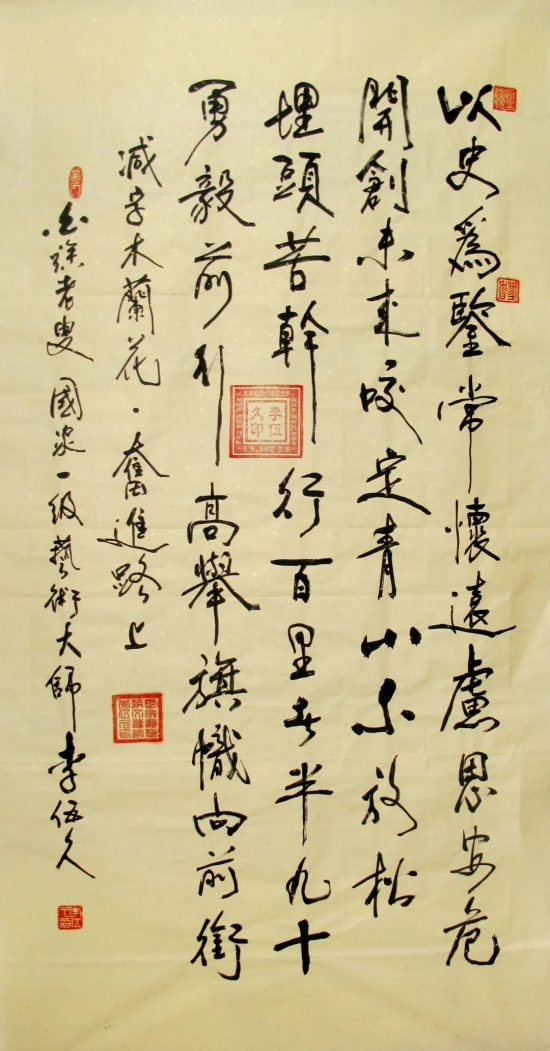 以史爲鑒常懷遠慮思安危
開創未来咬定青山不放松
埋頭苦幹行百里者半九十
勇毅前行高舉旗幟向前衝
减字木蘭花·奮進路上
老叟國家一级藝術大師李伍久
李伍久印